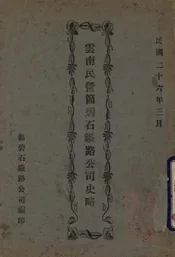 民國二十六年三月
雲南民營箇碧石鐵路公司史略
箇碧石鐵路公司編印